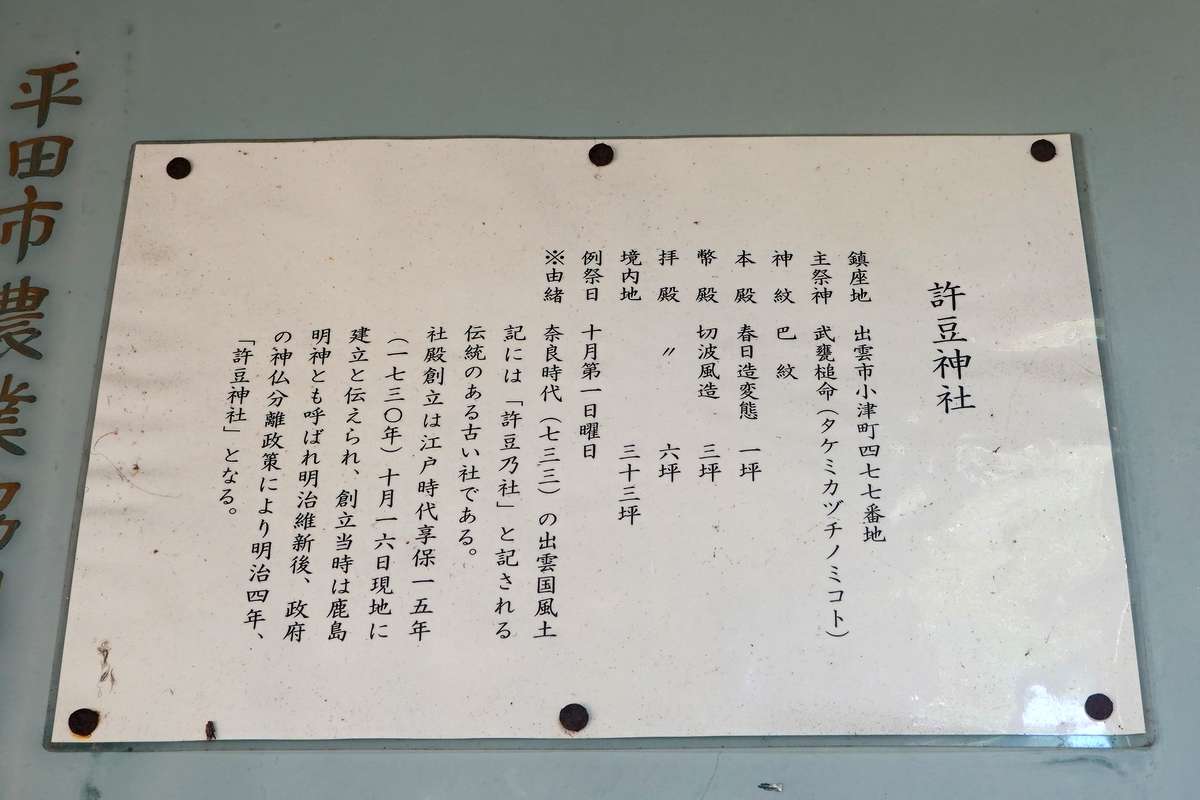 許豆神社
鎮座地 出雲市小津町四七七番地
主祭神 武甕槌命（タケミカヅチノミコト）
神紋 巴紋
本殿 春日造変態 一坪
幣殿 切波風造 三坪
拝殿 〃 六坪
境内地 三十三坪
例祭日 十月第一日曜日
※由緒 奈良時代（七三三）の出雲国風土
記には「許豆乃社」と記される
伝統のある古い社である。
社殿創立は江戸時代享保一五年
（一七三〇年）十月一六日現地に
建立と伝えられ、創立当時は鹿島
明神とも呼ばれ明治維新後、政府
の神仏分離政策により明治四年、
「許豆神社」となる。
平田市農業